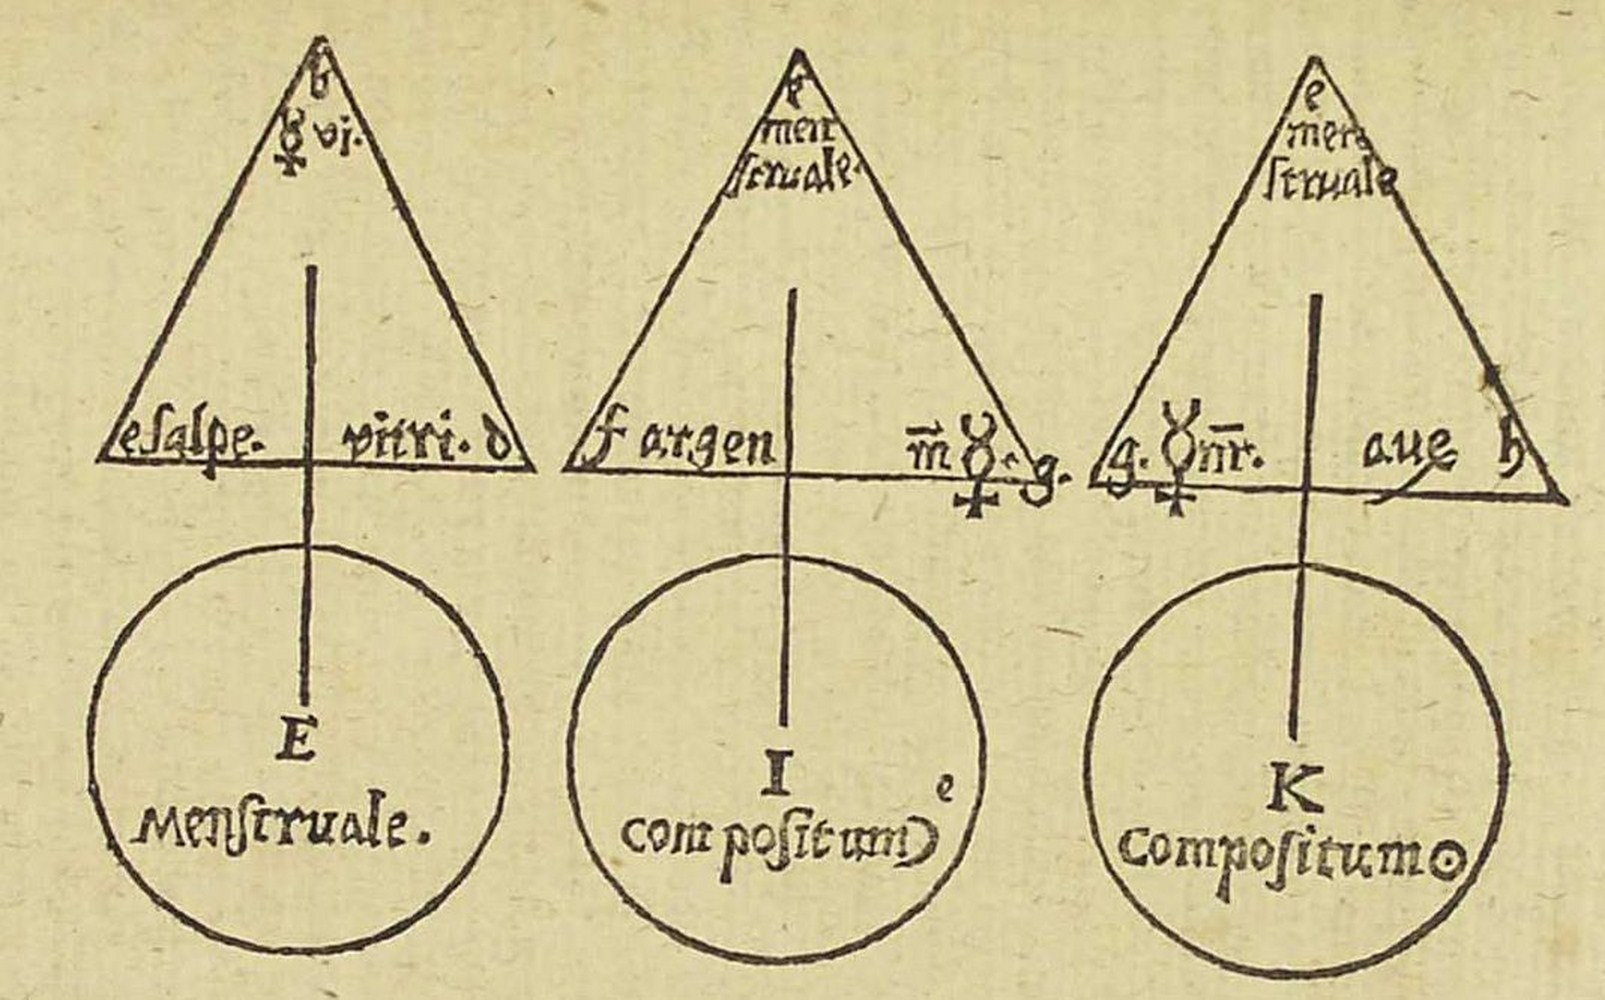 b
☿ vi.
e ſalpe. vitri. d
E
Menſtruale.
e
men
ſtruale.
f argen m̄ ☿. g.
I
compoſitum ☽ e
e
men
ſtruale
g. ☿ m̄r. aue h
K
Compoſitum ☉